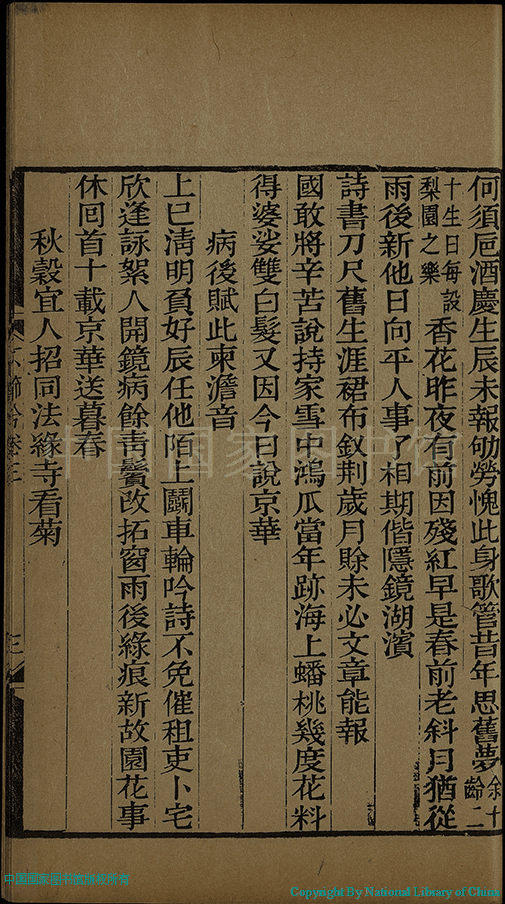 何須卮酒慶生辰未報劬勞愧此身歌管昔年思舊夢余十齡二
十生日每設梨園之樂香花昨夜有前因殘紅早是春前老斜月猶從
雨後新他日向平人事了相期偕隱鏡湖濱
詩書刀尺舊生涯裙布釵荆歲月賒未必文章能報
國敢將辛苦說持家雪中鴻爪當年跡海上蟠桃幾度花料
得婆娑雙白髮又因今日說京華
病後賦此柬澹音
上巳淸明負好辰任他陌上鬭車輪吟詩不免催租吏卜宅
欣逢詠絮人開鏡病餘靑鬢改拓窗雨後綠痕新故園花事
休回首十載京華送暮春
秋穀宜人招同法緣寺看菊
卷三
三
中国国家图书馆
中国国家图书馆版权所有
Copyright By National Library of China